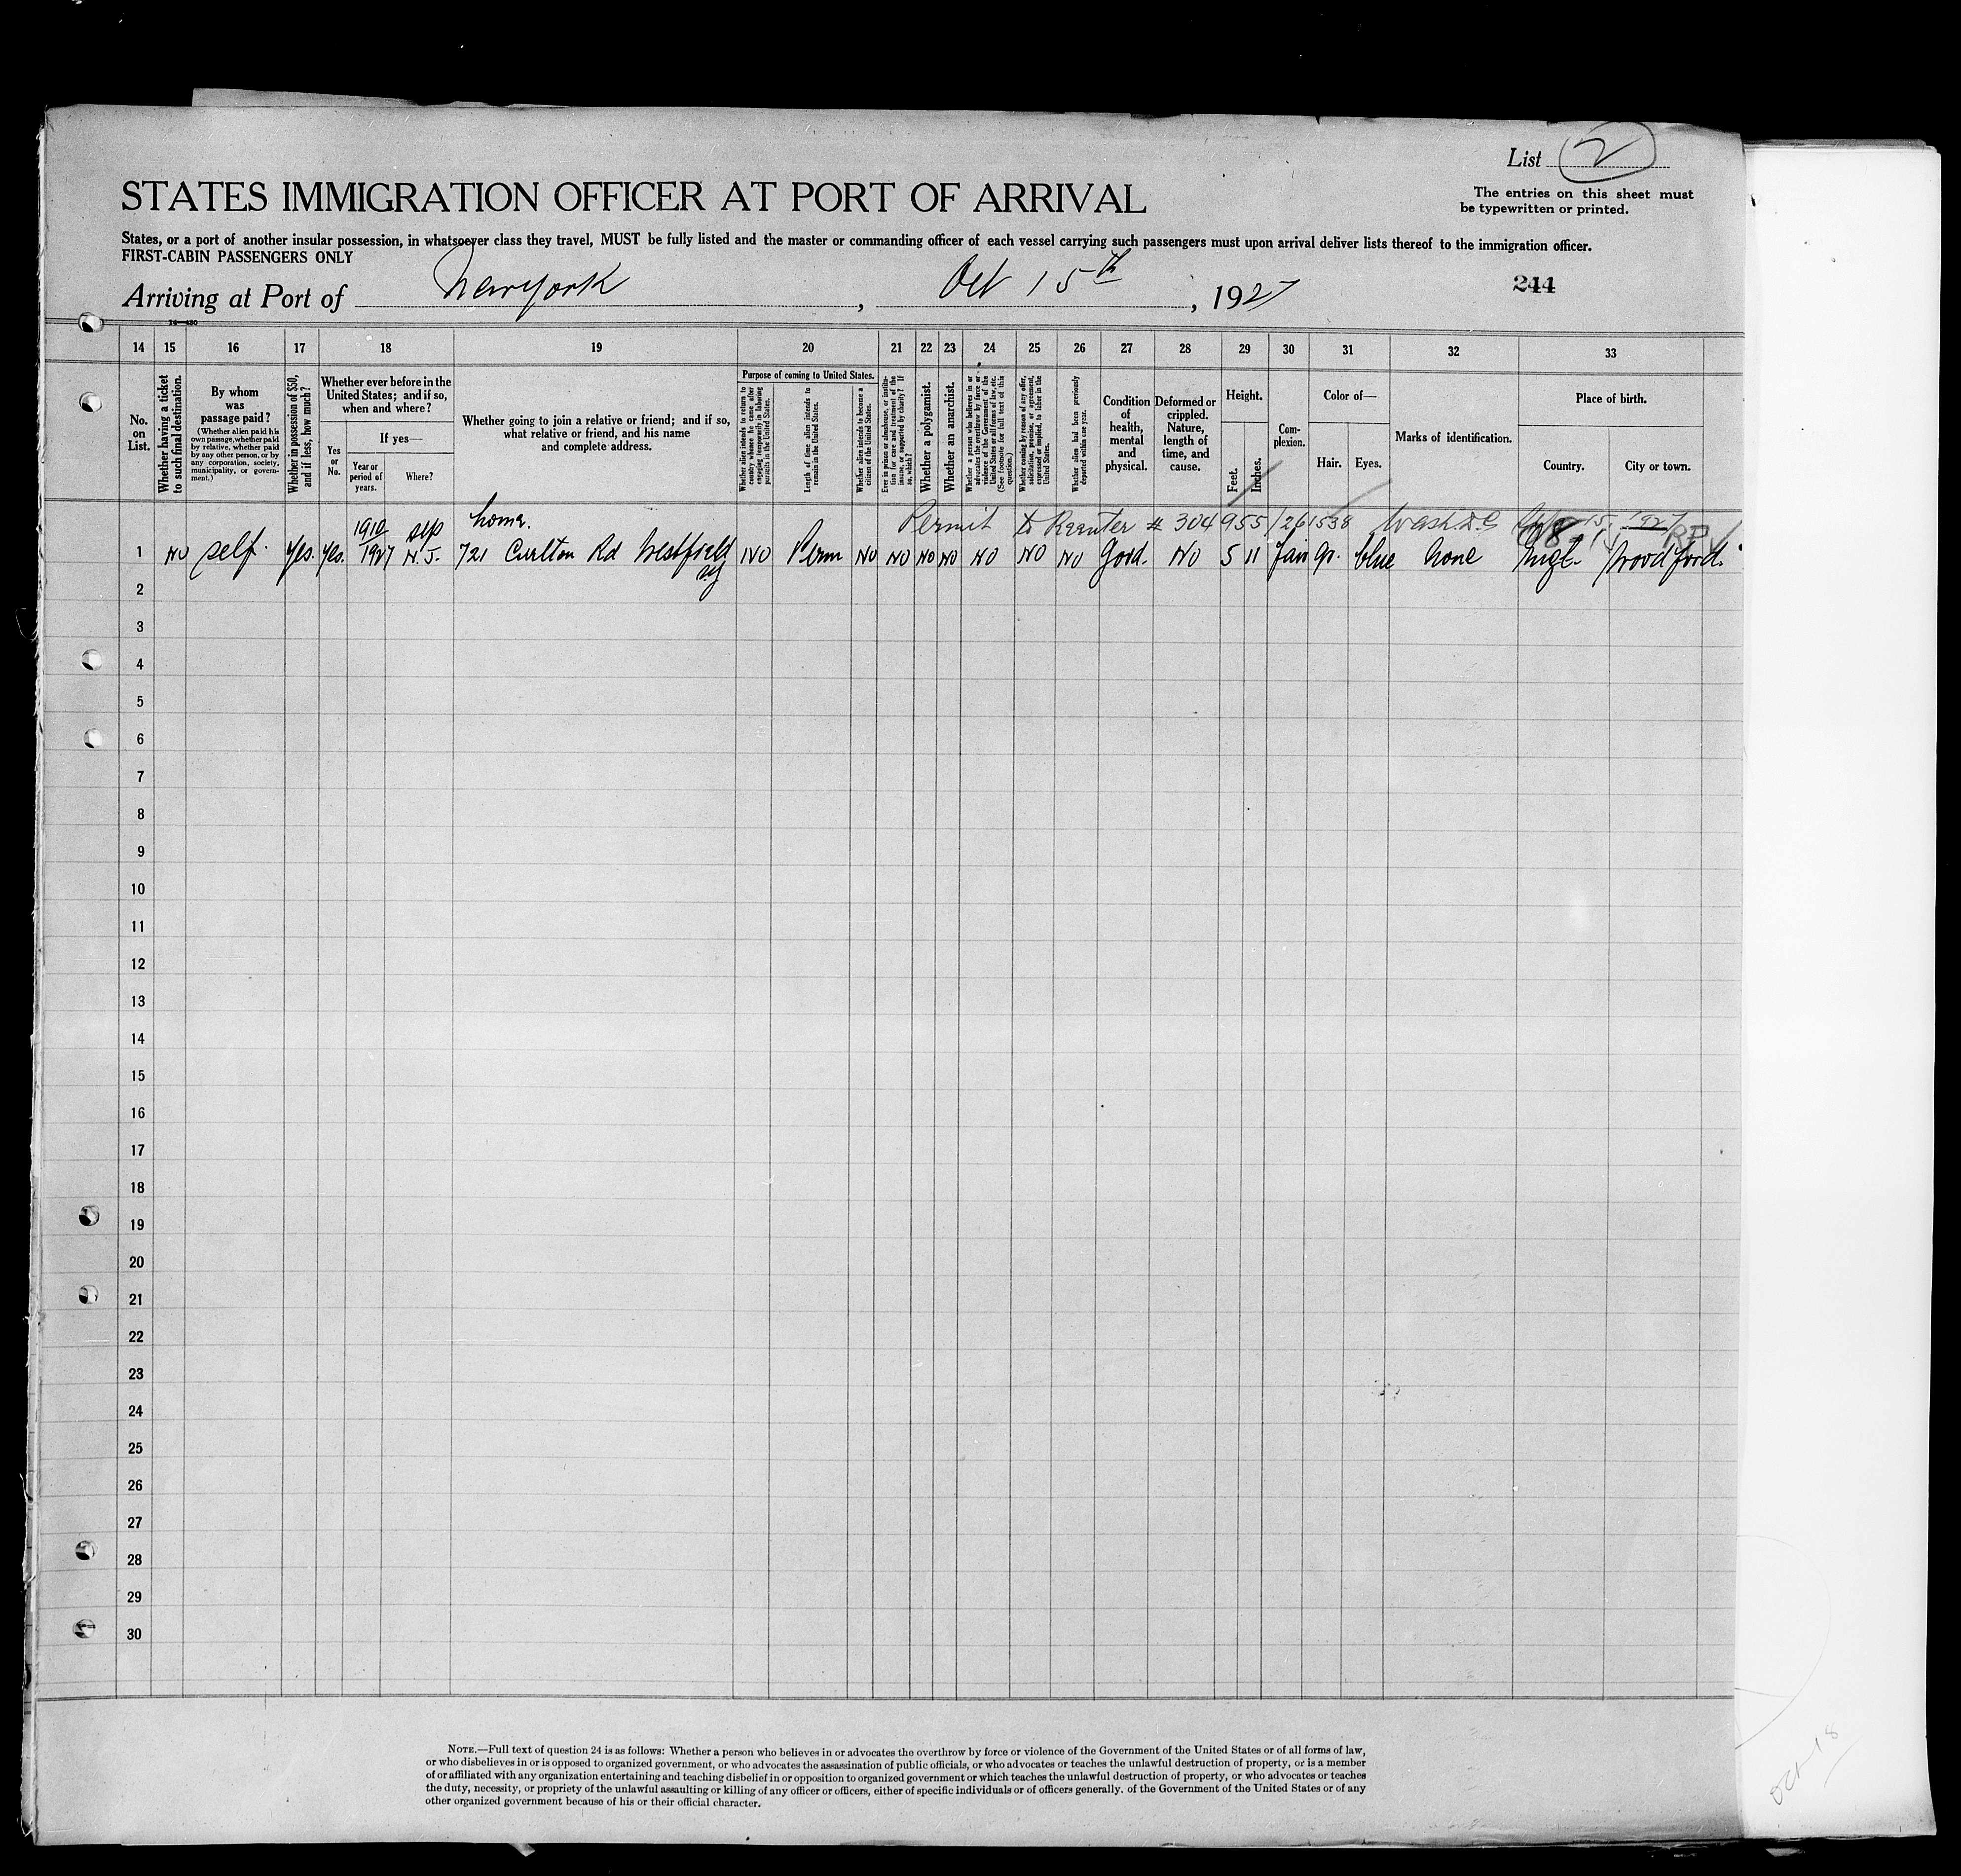 List 2
STATES IMMIGRATION OFFICER AT PORT OF ARRIVAL
The entries on this sheet must
be typewritten or printed.
States, or a port of another insular possession, in whatsoever class they travel, MUST be fully listed and the master or commanding officer of each vessel carrying such passengers must upon arrival deliver lists thereof to the immigration officer.
FIRST-CABIN PASSENGERS ONLY
Arriving at Port of New York, Oct 15th, 1927
244
14 15 16 17 18 19 20 21 22 23 24 25 26 27 28 29 30 31 32 33
No. on List.
Whether having a ticket to such final destination.
By whom was passage paid?
(Whether alien paid his own passage, whether paid by relative, whether paid by any other person, or by any corporation, society, municipality, or government.)
Whether in possession of $50, and if less, how much?
Whether ever before in the United States; and if so, when and where?
Yes or No.
If yes—
Year or period of years.
Where?
Whether going to join a relative or friend; and if so, what relative or friend, and his name and complete address.
Purpose of coming to United States.
Whether alien intends to return to country whence he came after engaging temporarily in laboring pursuits in the United States.
Length of time alien intends to remain in the United States.
Whether alien intends to become a citizen of the United States.
Ever in prison or almshouse, or institution for care and treatment of the insane, or supported by charity? If so, which?
Whether a polygamist.
Whether an anarchist.
Whether a person who believes in or advocates the overthrow by force or violence of the Government of the United States or all forms of law, etc. (See footnote for full text of this question.)
Whether coming by reason of any offer, solicitation, promise, or agreement, expressed or implied, to labor in the United States.
Whether alien had been previously deported within one year.
Condition of health, mental and physical.
Deformed or crippled. Nature, length of time, and cause.
Height.
Feet.
Inches.
Com-plexion.
Color of—
Hair.
Eyes.
Marks of identification.
Place of birth.
Country.
City or town.
1910 Sep home. Permit to Reenter # 304955/261538 Wash D.C. 15, 1927
1 No self. Yes. Yes. 1927 N.J. 721 Carlton Rd Westfield NJ No Perm No No No No No No No Good. No 5 11 fair gr. blue None Engl. Woodford.
2
3
4
5
6
7
8
9
10
11
12
13
14
15
16
17
18
19
20
21
22
23
24
25
26
27
28
29
30
NOTE.—Full text of question 24 is as follows: Whether a person who believes in or advocates the overthrow by force or violence of the Government of the United States or of all forms of law,
or who disbelieves in or is opposed to organized government, or who advocates the assassination of public officials, or who advocates or teaches the unlawful destruction of property, or is a member
of or affiliated with any organization entertaining and teaching disbelief in or opposition to organized government or which teaches the unlawful destruction of property, or who advocates or teaches
the duty, necessity, or propriety of the unlawful assaulting or killing of any officer or officers, either of specific individuals or of officers generally. of the Government of the United States or of any
other organized government because of his or their official character.
Oct 18